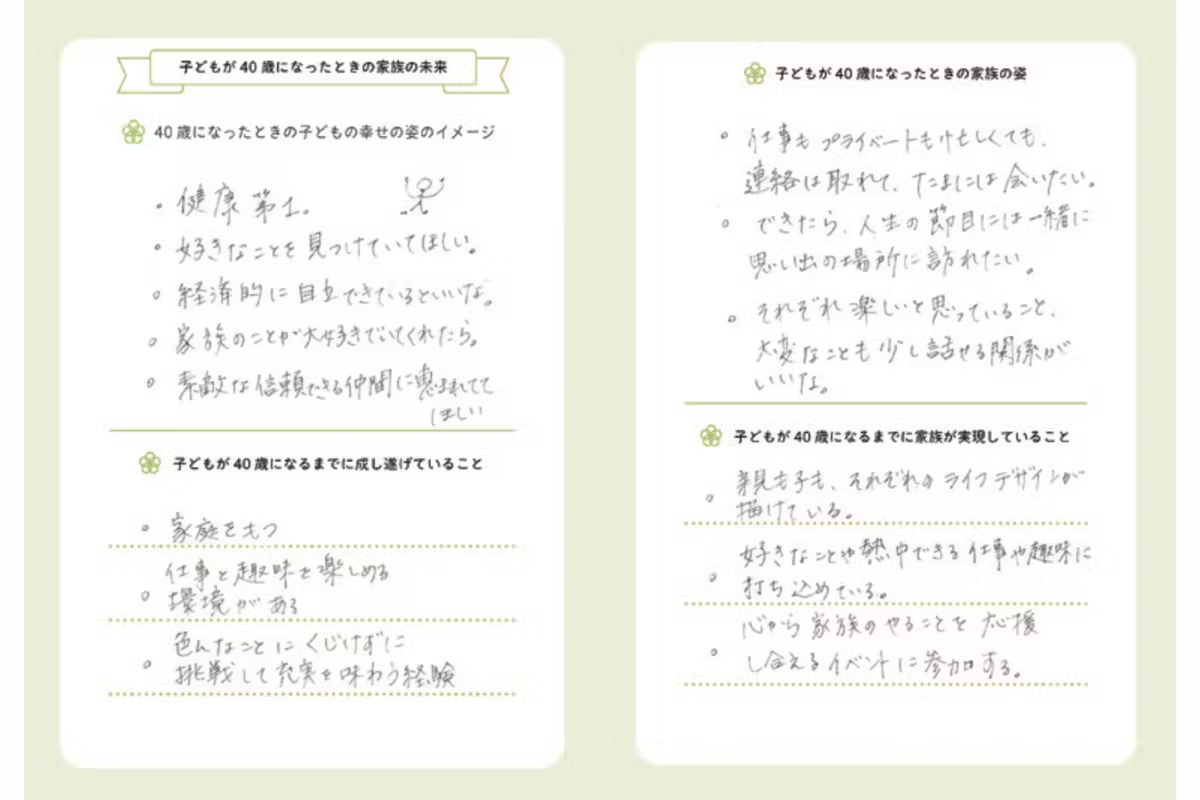 子どもが40歳になったときの家族の未来
40歳になったときの子どもの幸せの姿のイメージ
。健康第1。
。好きなことを見つけていてほしい。
。経済的に自立できているといいな。
。家族のことが大好きでいてくれたら。
。素敵な信頼できる仲間に恵まれてて
ほしい
子どもが40歳になるまでに成し遂げていること
。家庭をもつ
仕事と趣味を楽しめる
。環境がある
色んなことにくじけずに
。挑戦して充実を味わう経験
子どもが40歳になったときの家族の姿
。仕事もプライベートも忙しくても、
連絡は取れて、たまには会いたい。
。できたら、人生の節目には一緒に
思い出の場所に訪れたい。
。それぞれ楽しいと思っていること、
大変なことも少し話せる関係が
いいな。
子どもが40歳になるまでに家族が実現していること
親も子も、それぞれのライフデザインが
。描けている。
好きなことや熱中できる仕事や趣味に
。打ち込めている。
心から家族のやることを応援
。し合えるイベントに参加する。